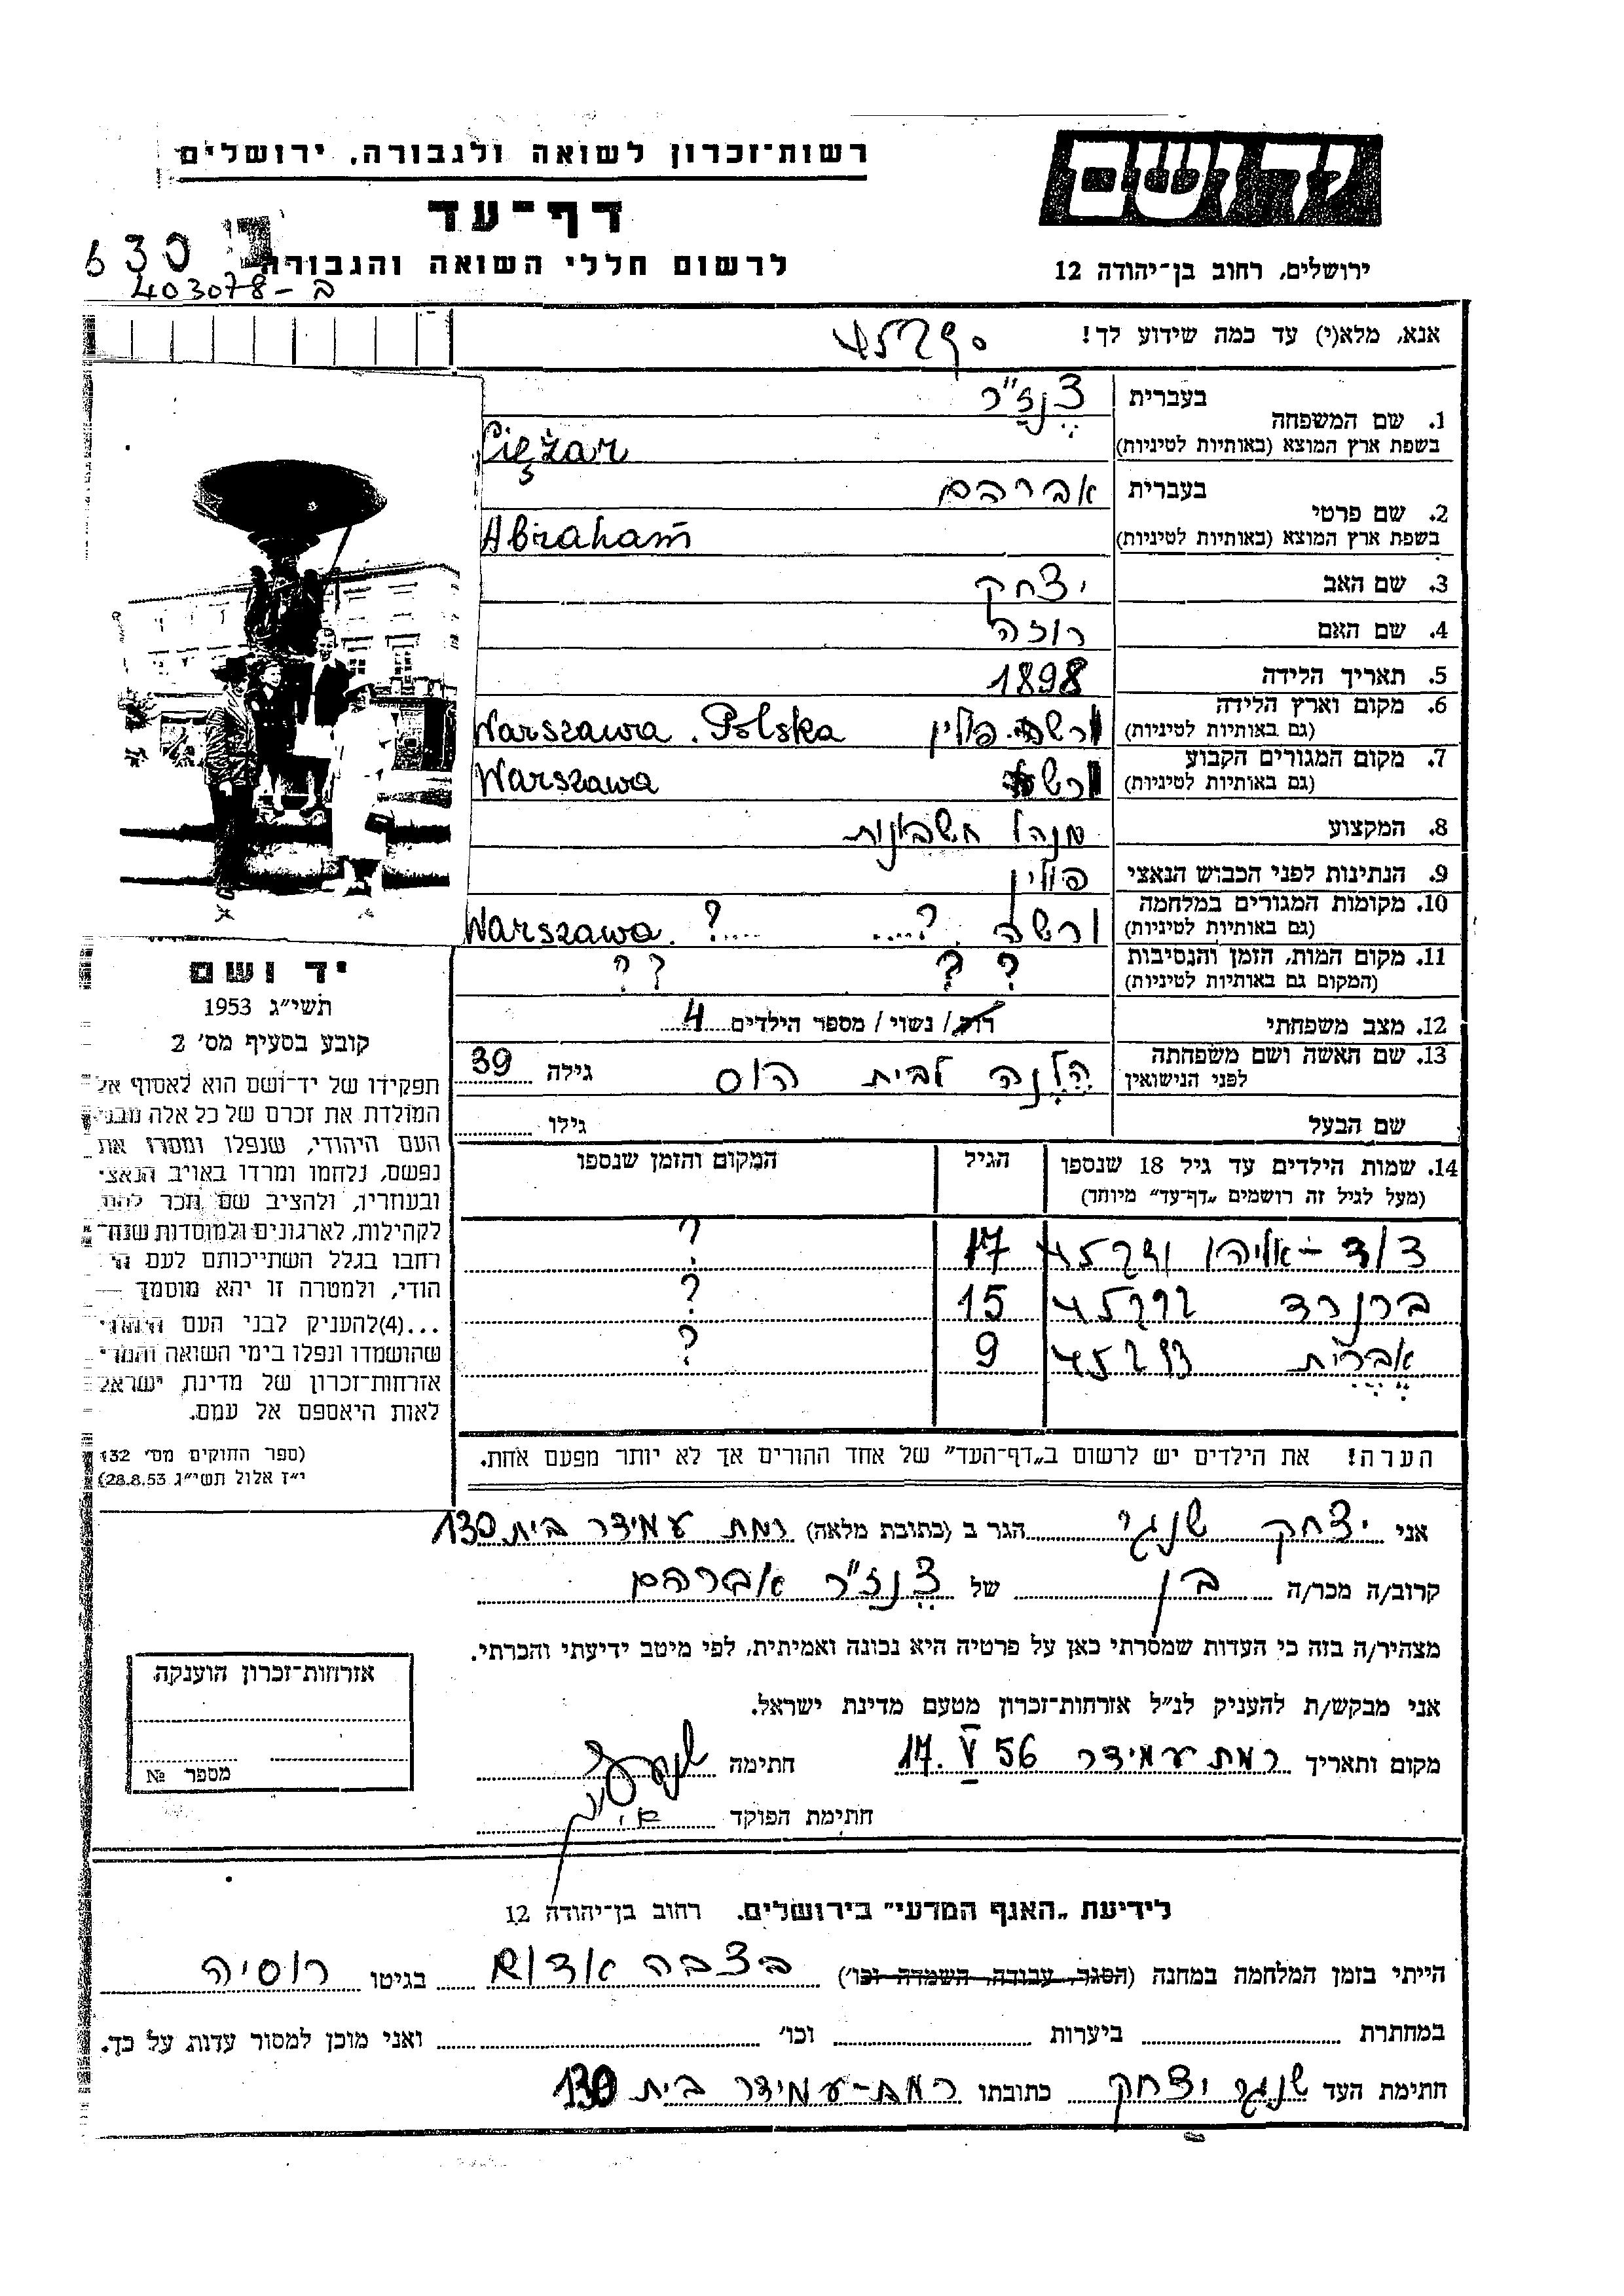 רשות-זכרון לשואה ולגבורה, ירושלים
יד ושם
דף-עד
לרשום חללי השואה והגבורה
ירושלים, רחוב בן-יהודה 12
630
ב-403078
אנא, מלא(י) עד כמה שידוע לך!
1. שם המשפחה בעברית צֶנְזַ"ר
בשפת ארץ המוצא (באותיות לטיניות) Ciężar
2. שם פרטי בעברית אברהם
בשפת ארץ המוצא (באותיות לטיניות) Abraham
3. שם האב יצחק
4. שם האם רוזה
5. תאריך הלידה 1898
6. מקום וארץ הלידה (גם באותיות לטיניות) ורשה. פולין Warszawa. Polska
7. מקום המגורים הקבוע (גם באותיות לטיניות) ורשה Warszawa
8. המקצוע מנהל חשבונות
9. הנתינות לפני הכבוש הנאצי פולין
10. מקומות המגורים במלחמה (גם באותיות לטיניות) ורשה ?.... Warszawa. ?....
11. מקום המות, הזמן והנסיבות (המקום גם באותיות לטיניות) ? ? ? ?
12. מצב משפחתי רווק / נשוי / מספר הילדים 4
13. שם האשה ושם משפחתה לפני הנישואין הֶלֶנָה לבית הוס גילה 39
שם הבעל גילו
14. שמות הילדים עד גיל 18 שנספו (מעל לגיל זה רושמים "דף-עד" מיוחד) הגיל המקום והזמן שנספו
דוד-אליהו 17 ?
ברנרד 15 ?
9 ?
הערה! את הילדים יש לרשום ב"דף-העד" של אחד ההורים אך לא יותר מפעם אחת.
יד ושם
תשי"ג 1953
קובע בסעיף מס' 2
תפקידו של יד-ושם הוא לאסוף אל
המולדת את זכרם של כל אלה מבני
העם היהודי, שנפלו ומסרו את
נפשם, נלחמו ומרדו באויב הנאצי
ובעוזריו, ולהציב שם וזכר להם,
לקהילות, לארגונים ולמוסדות שנח-
רחבו בגלל השתייכותם לעם הי-
הודי, ולמטרה זו יהא מוסמך —
...(4)להעניק לבני העם היהודי
שהושמדו ונפלו בימי השואה והמרי
אזרחות-זכרון של מדינת ישראל
לאות היאספם אל עמם.
(ספר החוקים מס' 132
י"ז אלול תשי"ג 28.8.53)
אני יצחק שנגי הגר ב (כתובת מלאה) רמת עמידר בית 130
קרוב/ה מכר/ה בן של צֶנְזַ"ר אברהם
מצהיר/ה בזה כי העדות שמסרתי כאן על פרטיה היא נכונה ואמיתית, לפי מיטב ידיעתי והכרתי.
אני מבקש/ת להעניק לנ"ל אזרחות-זכרון מטעם מדינת ישראל.
מקום ותאריך רמת עמידר 17. V 56 חתימה
חתימת הפוקד
אזרחות-זכרון הוענקה
מספר №
לידיעת "האגף המדעי" בירושלים. רחוב בן-יהודה 12
הייתי בזמן המלחמה במחנה (הסגר, עבודה, השמדה וכו') בצבה אדום בגיטו רוסיה
במחתרת ביערות וכו' ואני מוכן למסור עדות על כך.
חתימת העד שנגי יצחק כתובתו רמת-עמידר בית 130